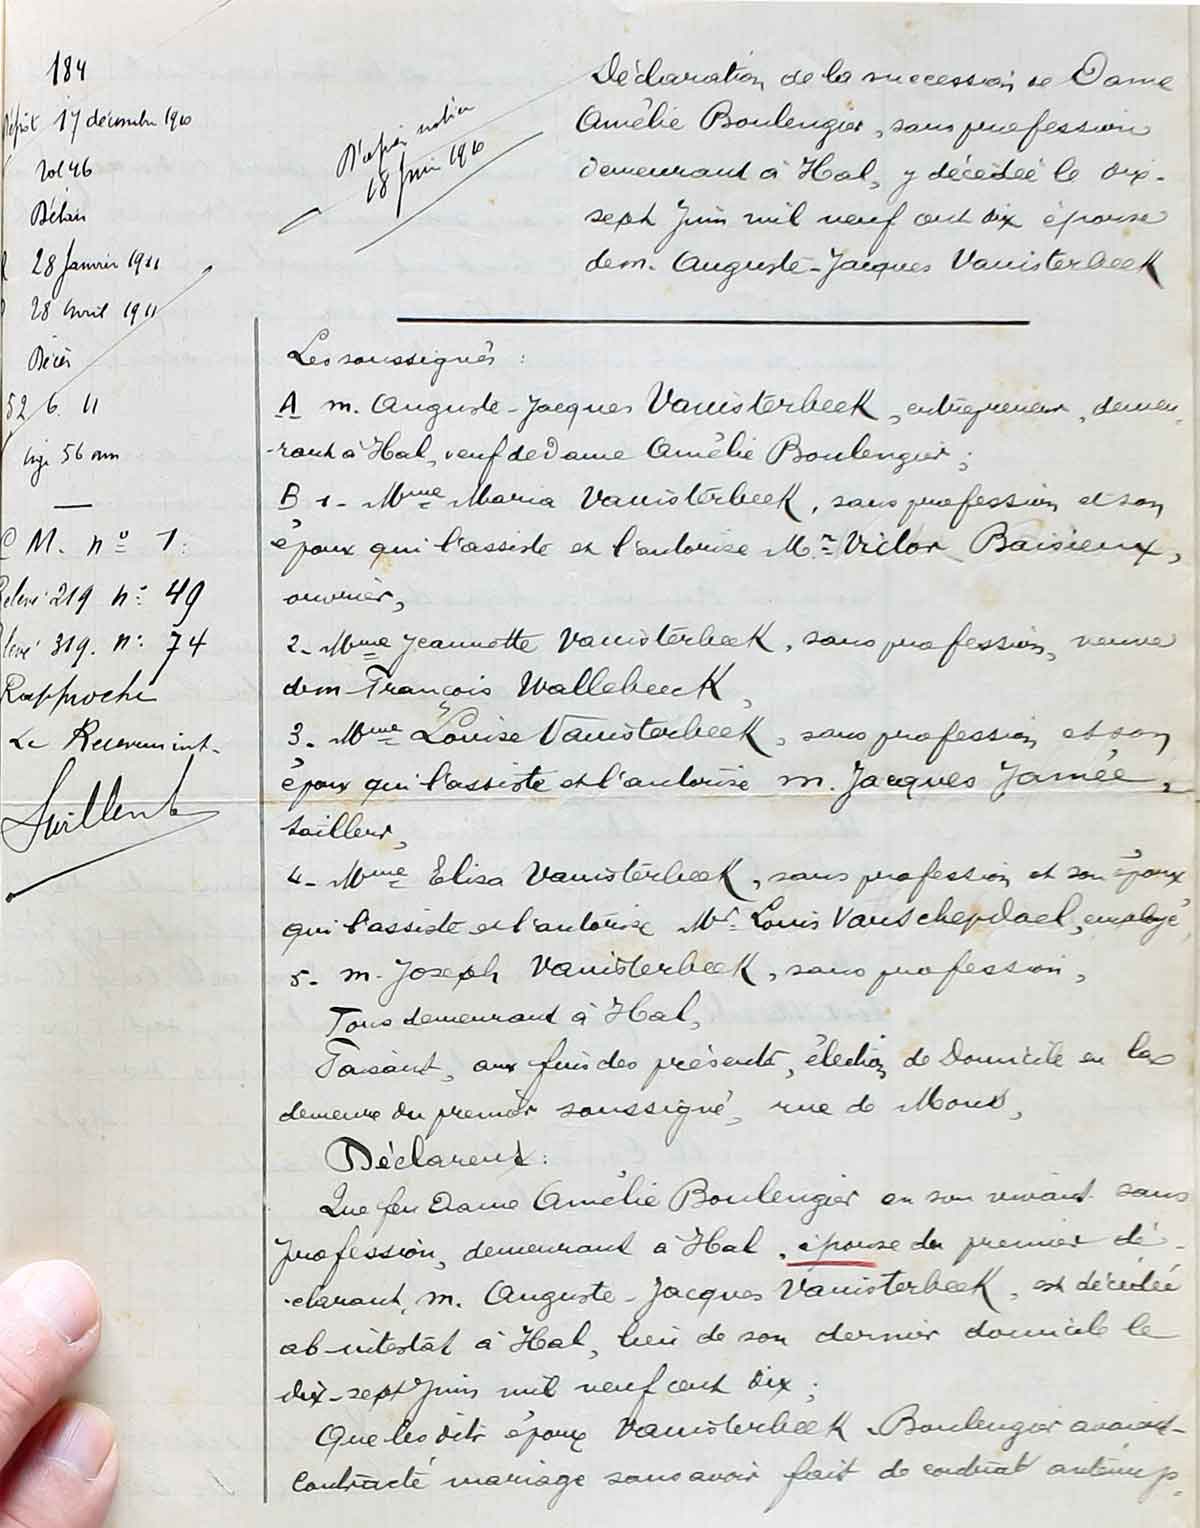 184
Dépôt 17 décembre 1910
vol 46
Délai
28 Janvier 1911
28 avril 1911
Décès
52 6. 11
âge 56 ans
C M. nº 1:
Relevé 219 nº 49
Relevé 319. nº: 74
Rapproché
Le Receveur int.
18 Juin 1910
Déclaration de la succession de Dame
Amélie Boulengier, sans profession
demeurant à Hal, y décédée le dix-
sept Juin mil neuf cent dix épouse
de m. Auguste-Jacques Vanisterbeek
Les soussignés :
A m. Auguste-Jacques Vanisterbeek, entrepreneur, demeu-
-rant à Hal, veuf de Dame Amélie Boulengier;
B 1- Mme Maria Vanisterbeek, sans profession et son
époux qui l'assiste et l'autorise Mr Victor Baisieux,
ouvrier,
2- Mme Jeannette Vanisterbeek, sans profession, veuve
de m- François Wallebeeck,
3- Mme Louise Vanisterbeek, sans profession et son
époux qui l'assiste et l'autorise m. Jacques Jamée,
tailleur,
4- Mme Elisa Vanisterbeek, sans profession et son époux
qui l'assiste et l'autorise Mr. Louis Vanschepdael, employé,
5- m. Joseph Vanisterbeek, sans profession,
Tous demeurant à Hal,
Faisant, aux fins des présents, élection de Domicile en la
demeure du premier soussigné, rue de Mons,
Déclarent:
Que feu Dame Amélie Boulengier en son vivant sans
profession, demeurant à Hal, épouse du premier dé-
-clarant, m. Auguste-Jacques Vanisterbeek, est décédée
ab-intestat à Hal, lieu de son dernier domicile le
dix-sept Juin mil neuf cent dix;
Que les dits époux Vanisterbeek-Boulengier avaient
contracté mariage sans avoir fait de contrat antenup-